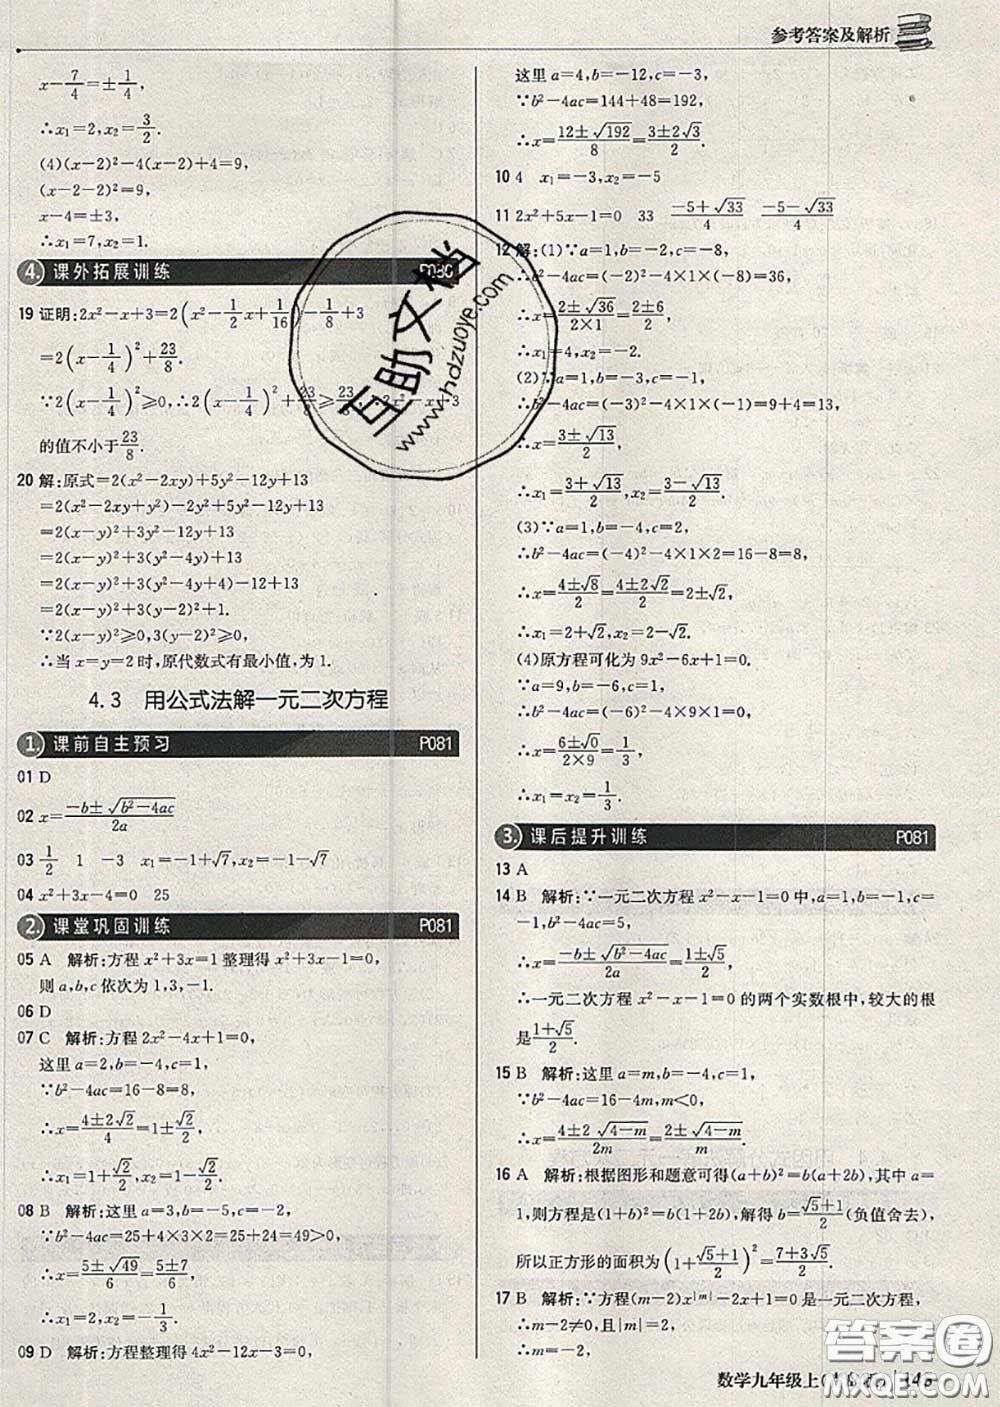 参考答案及解析
x-7/4=±1/4,
∴x₁=2,x₂=3/2.
(4)(x-2)²-4(x-2)+4=9,
(x-2-2)²=9,
x-4=±3,
∴x₁=7,x₂=1.
4. 课外拓展训练 P080
19 证明:2x²-x+3=2(x²-1/2x+1/16)-1/8+3
=2(x-1/4)²+23/8.
∵2(x-1/4)²≥0,∴2(x-1/4)²+23/8≥23/8,∴2x²-x+3
的值不小于23/8.
20 解:原式=2(x²-2xy)+5y²-12y+13
=2(x²-2xy+y²)-2y²+5y²-12y+13
=2(x-y)²+3y²-12y+13
=2(x-y)²+3(y²-4y)+13
=2(x-y)²+3(y²-4y+4)-12+13
=2(x-y)²+3(y-2)²+1.
∵2(x-y)²≥0,3(y-2)²≥0,
∴当x=y=2时,原代数式有最小值,为1.
4.3 用公式法解一元二次方程
1. 课前自主预习 P081
01 D
02 x=(-b±√(b²-4ac))/2a
03 1/2 1 -3 x₁=-1+√7,x₂=-1-√7
04 x²+3x-4=0 25
2. 课堂巩固训练 P081
05 A 解析:方程x²+3x=1整理得x²+3x-1=0,
则a,b,c依次为1,3,-1.
06 D
07 C 解析:方程2x²-4x+1=0,
这里a=2,b=-4,c=1,
∵b²-4ac=16-8=8,
∴x=(4±2√2)/4=1±√2/2,
∴x₁=1+√2/2,x₂=1-√2/2.
08 B 解析:这里a=3,b=-5,c=-2,
∵b²-4ac=25+4×3×2=25+24=49>0,
∴x=(5±√49)/6=(5±7)/6,
∴x₁=2,x₂=-1/3.
09 D 解析:方程整理得4x²-12x-3=0,
这里a=4,b=-12,c=-3,
∵b²-4ac=144+48=192,
∴x=(12±√192)/8=(3±2√3)/2.
10 4 x₁=-3,x₂=-5
11 2x²+5x-1=0 33 (-5+√33)/4 (-5-√33)/4
12 解:(1)∵a=1,b=-2,c=-8,
∴b²-4ac=(-2)²-4×1×(-8)=36,
∴x=(2±√36)/(2×1)=(2±6)/2,
∴x₁=4,x₂=-2.
(2)∵a=1,b=-3,c=-1,
∴b²-4ac=(-3)²-4×1×(-1)=9+4=13,
∴x=(3±√13)/2,
∴x₁=(3+√13)/2,x₂=(3-√13)/2.
(3)∵a=1,b=-4,c=2,
∴b²-4ac=(-4)²-4×1×2=16-8=8,
∴x=(4±√8)/2=(4±2√2)/2=2±√2,
∴x₁=2+√2,x₂=2-√2.
(4)原方程可化为9x²-6x+1=0.
∵a=9,b=-6,c=1,
∴b²-4ac=(-6)²-4×9×1=0,
∴x=(6±√0)/(2×9)=1/3,
∴x₁=x₂=1/3.
3. 课后提升训练 P081
13 A
14 B 解析:∵一元二次方程x²-x-1=0中,a=1,b=-1,c=
-1,b²-4ac=5,
∴x=(-b±√(b²-4ac))/2a=(1±√5)/2,
∴一元二次方程x²-x-1=0的两个实数根中,较大的根
是(1+√5)/2.
15 B 解析:这里a=m,b=-4,c=1,
∵b²-4ac=16-4m,m<0,
∴x=(4±2√(4-m))/2m=(2±√(4-m))/m.
16 A 解析:根据图形和题意可得(a+b)²=b(a+2b),其中a=
1,则方程是(1+b)²=b(1+2b),解得b=(√5+1)/2(负值舍去),
所以正方形的面积为(1+(√5+1)/2)²=(7+3√5)/2.
17 B 解析:∵方程(m-2)x^|m|-2x+1=0是一元二次方程,
∴m-2≠0,且|m|=2,
∴m=-2,
数学九年级上
互助文档
www.hdzuoye.com
答案圈
MXQE.COM